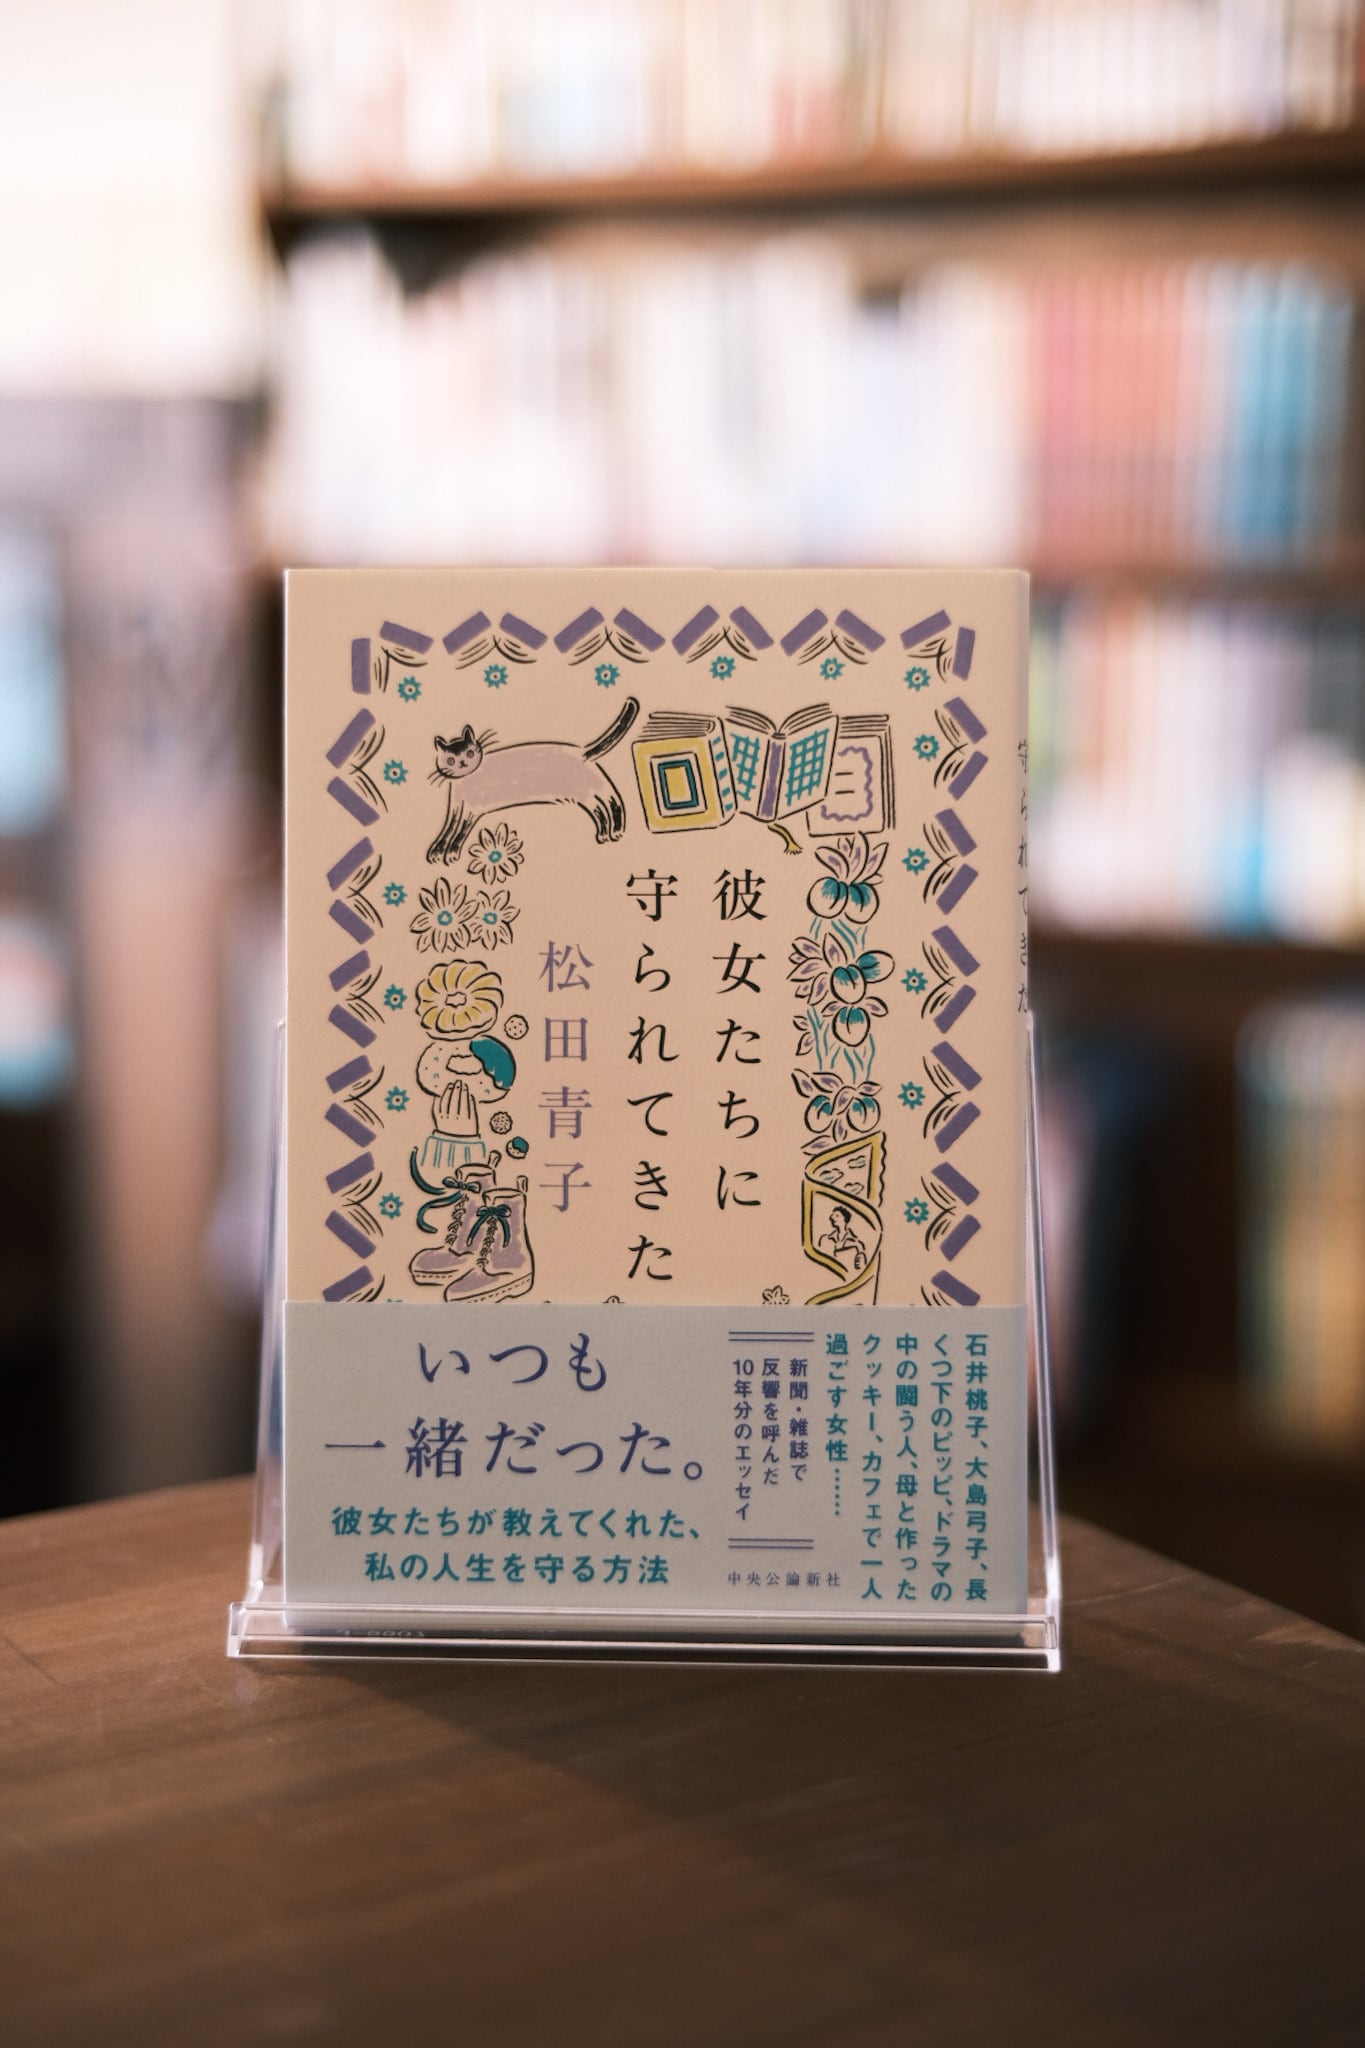 彼女たちに
守られてきた
松田青子
守られてきた
いつも
一緒だった。
彼女たちが教えてくれた、
私の人生を守る方法
石井桃子、大島弓子、長
くつ下のピッピ、ドラマの
中の闘う人、母と作った
クッキー、カフェで一人
過ごす女性……
新聞・雑誌で
反響を呼んだ
10年分のエッセイ
中央公論新社